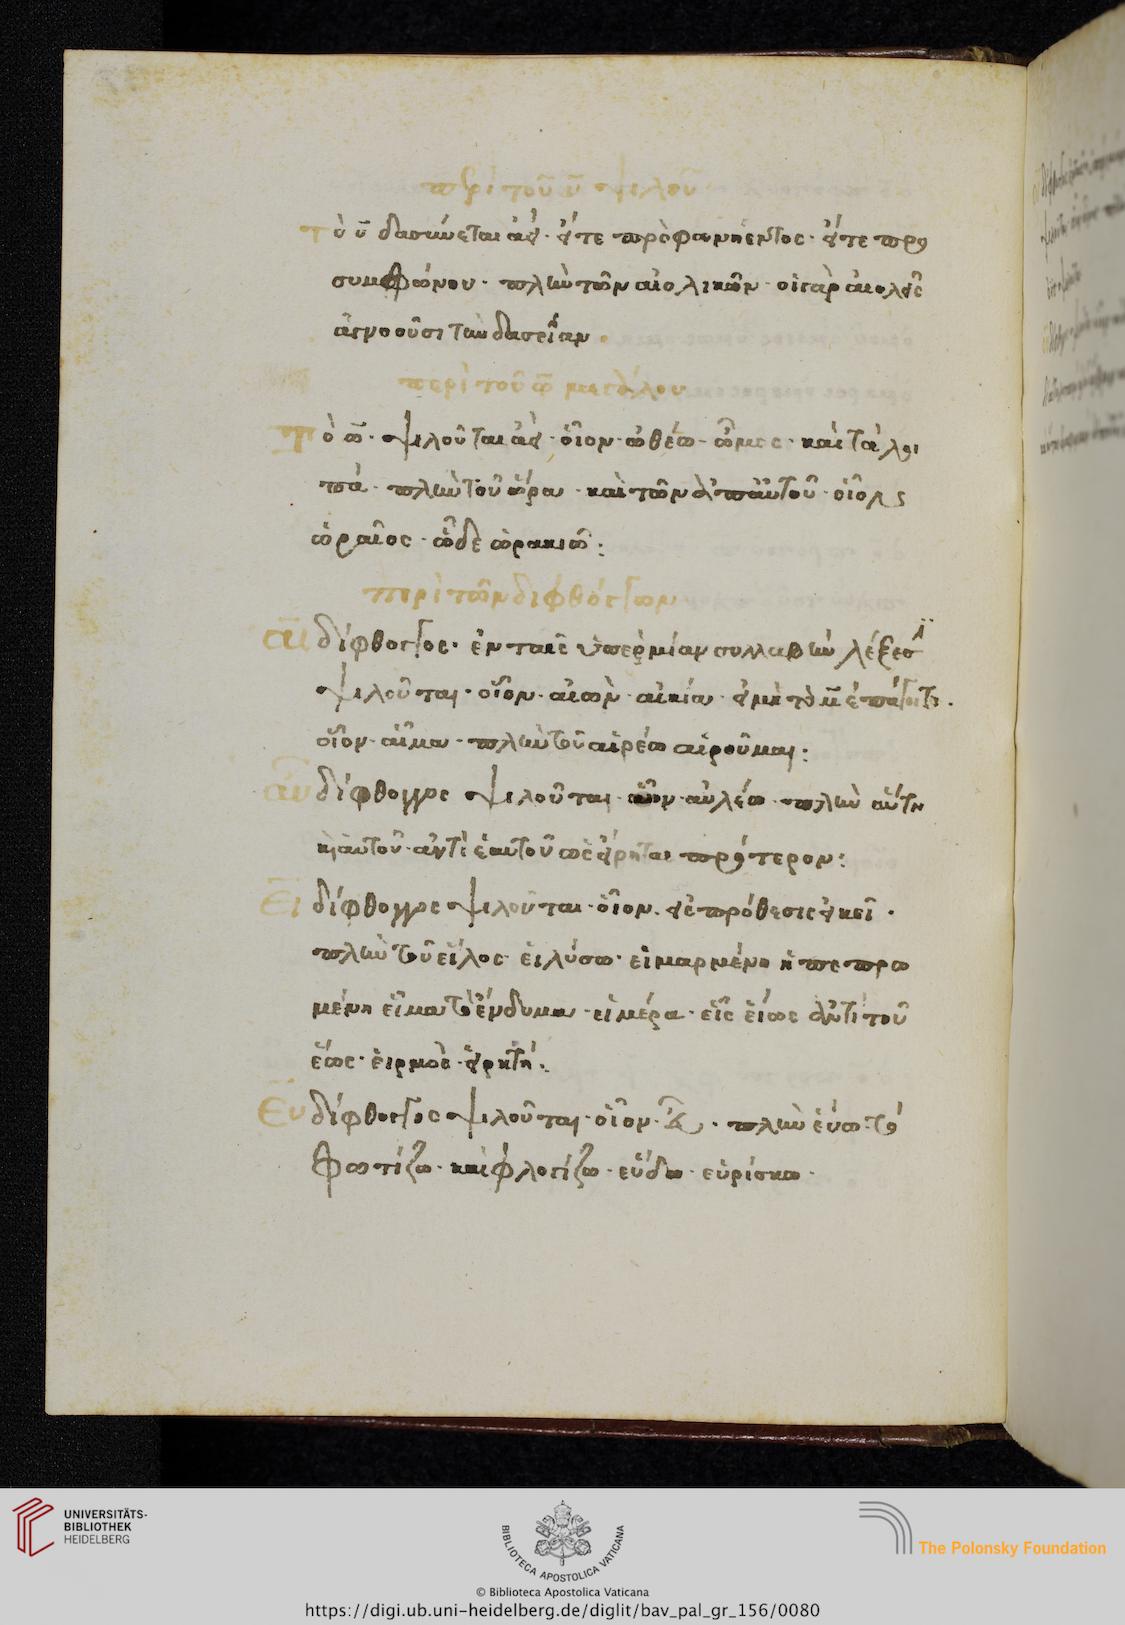 περὶ τοῦ ῡ ψιλοῦ
τὸ ῡ δασύνεται ἀεὶ· εἴτε πρὸ φωνήεντος· εἴτε πρὸ
συμφώνου· πλὴν τῶν αἰολικῶν· οἱ γὰρ αἰολεῖς
ἀγνοοῦσι τὴν δασεῖαν
περὶ τοῦ ω̄ μεγάλου
Τὸ ω̄· ψιλοῦται ἀεὶ· οἷον· ὠθέω· ὦμος· καὶ τὰ λοι
πά· πλὴν τοῦ ὥρα· καὶ τῶν ἀπ' αὐτοῦ· οἷον
ὡραῖος· ὧδε ὡρακιῶ:
περὶ τῶν διφθόγγων
αι δίφθογγος· ἐν ταῖς ὑπὲρ μίαν συλλαβὴν λέξεσι
ψιλοῦται· οἷον· αἰὼν· αἰκία· εἰ μὴ τὸ μ̄ ἐπάγοιτο·
οἷον· αἷμα· πλὴν τοῦ αἱρέω αἱροῦμαι:
αυ δίφθογγος ψιλοῦται· οἷον· αὐλέω· πλὴν αὕτη
καὶ αὑτοῦ· ἀντὶ ἑαυτοῦ ὡς εἴρηται πρότερον:
Ει δίφθογγος ψιλοῦται· οἷον· εἰς πρόθεσις ἐκεῖ·
πλὴν τοῦ εἷλος· εἱλύσω· εἱμαρμένη ἡ πεπρω
μένη εἷμα τὸ ἔνδυμα· εἱμέρα· εἷς εἵως ἀντὶ τοῦ
ἕως· εἱρμὸς· εἱρκτή:
Ευ δίφθογγος ψιλοῦται· οἷον· πλὴν εὕω· τὸ
φωτίζω· καὶ φλογίζω· εὕδω· εὑρίσκω·
UNIVERSITÄTS-
BIBLIOTHEK
HEIDELBERG
BIBLIOTECA APOSTOLICA VATICANA
The Polonsky Foundation
© Biblioteca Apostolica Vaticana
https://digi.ub.uni-heidelberg.de/diglit/bav_pal_gr_156/0080